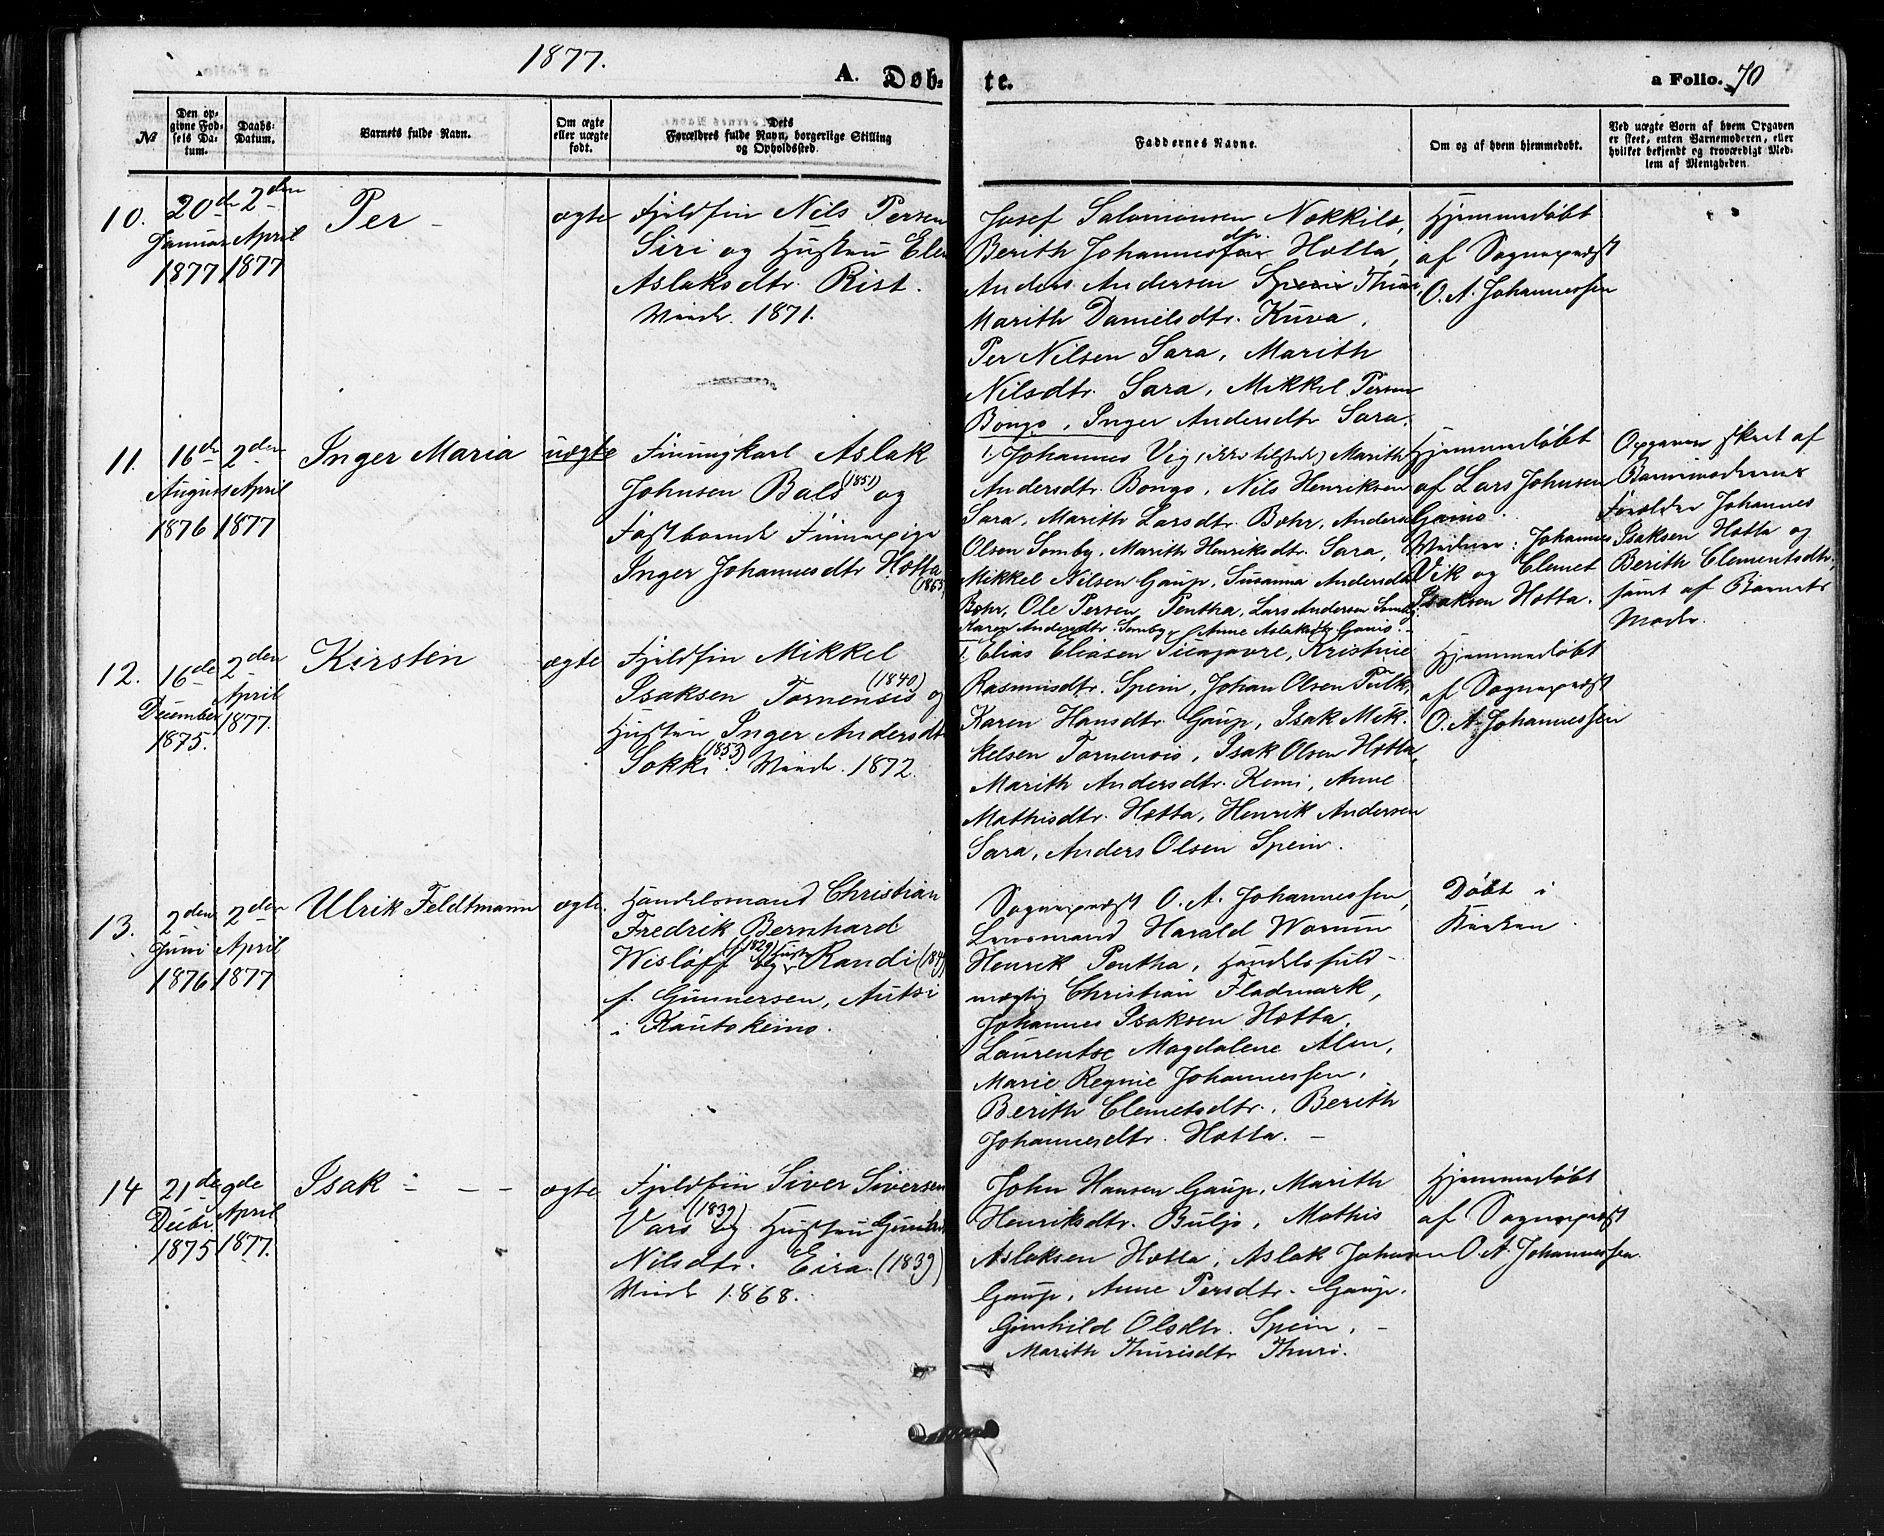 1877.
A. Døb- te.
a Folio. 70
№
Den op-
givne Fød-
sels Da-
tum.
Daabs-
Datum.
Barnets fulde Navn.
Om ægte
eller uægte
født.
Dets
Forældres fulde Navn, borgerlige Stilling
og Opholdssted.
Faddernes Navne.
Om og af hvem hjemmedøbt.
Ved uægte Børn af hvem Opgaven
er skeet, enten Barnemoderen, eller
hvilket bekjendt og troværdigt Med-
lem af Menigheden.
10.
20de
Januar
1877
2den
April
1877
Per -
ægte
Fjeldfin Nils Persen
Siri og Hustru Elen
Aslaksdtr. Rist.
1871.
Josef Salomonsen Nøkkilo,
Berith Johannesdtr. Hætta,
Anders Andersen Thuri,
Marith Danielsdtr. Kuva,
Per Nilsen Sara, Marith
Nilsdtr. Sara, Mikkel Persen
Bongo, Inger Andersdtr Sara.
Hjemmedøbt
af Sognepræst
O. A. Johannessen
11.
16de
August
1876
2den
April
1877
Inger Maria
uægte
Finungkarl Aslak
Johnsen Bals (1851) og
Fastboende Finnepige
Inger Johannesdtr Hætta
Johannes Vig, (ikke tilstede) Marith
Andersdtr. Bongo, Nils Henriksen
Sara, Marith Larsdtr. Bæhr, Anders
Olsen Somby, Marith Henriksdtr. Sara,
Mikkel Nilsen Gaup, Susanna Andersdtr
Bæhr, Ole Persen Pentha, Lars Andersen Somby
Karen Andersdtr. Somby, Anne Aslaksdtr Gaino.
Hjemmedøbt
af Lars Johnsen
Gaino.
Vidner: Johannes
Vik og Clemet
Isaksen Hætta.
Opgaven skeet af
Barnemoderens
Forældre Johannes
Isaksen Hætta og
Berith Clementsdtr,
samt af Barnets
Moder.
12.
16de
December
1875.
2den
April
1877.
Kirsten
ægte
Fjeldfin Mikkel
Isaksen Tornensis (1840) og
Hustru Inger Andersdtr
Sokki (1853). 1872.
Elias Eliasen Siiajavre, Kristine
Rasmusdtr. Spein, Johan Olsen Pulk,
Karen Hansdtr. Gaup, Isak Mik-
kelsen Tornensis, Isak Olsen Hætta,
Marith Andersdtr. Kemi, Anne
Mathisdtr. Hætta, Henrik Andersen
Sara, Anders Olsen Spein.
Hjemmedøbt
af Sognepræst
O. A. Johannessen
13.
2den
Juni
1876
2den
April
1877
Ulrik Feldtmann
ægte
Handelsmand Christian
Fredrik Bernhard
Wisløff (1829) og Hustru Randi
f. Gunnersen, Autsi
i Kautokeino.
Sognepræst O. A. Johannessen,
Lensmand Harald Worum
Henrik Pentha, Handelsfuld-
mægtig Christian Fladmark,
Johannes Isaksen Hætta,
Laurentse Magdalene Alm,
Marie Regine Johannessen,
Berith Clemetsdtr. Berith
Johannesdtr. Hætta. -
Døbt i
Kirken.
14
21de
Decbr
1875
9de
April
1877.
Isak - - -
ægte
Fjeldfin Siver Siversen
Vars (1839) og Hustru
Nilsdtr. Eira (1839)
1868.
John Hansen Gaup, Marith
Henriksdtr. Buljo, Mathis
Aslaksen Hætta, Aslak Johnsen
Gaup, Anne Persdtr. Gaup,
Gunhild Olsdtr. Spein, -
Marith Thurisdtr Thuri.
Hjemmedøbt
af Sognepræst
O. A. Johannessen.